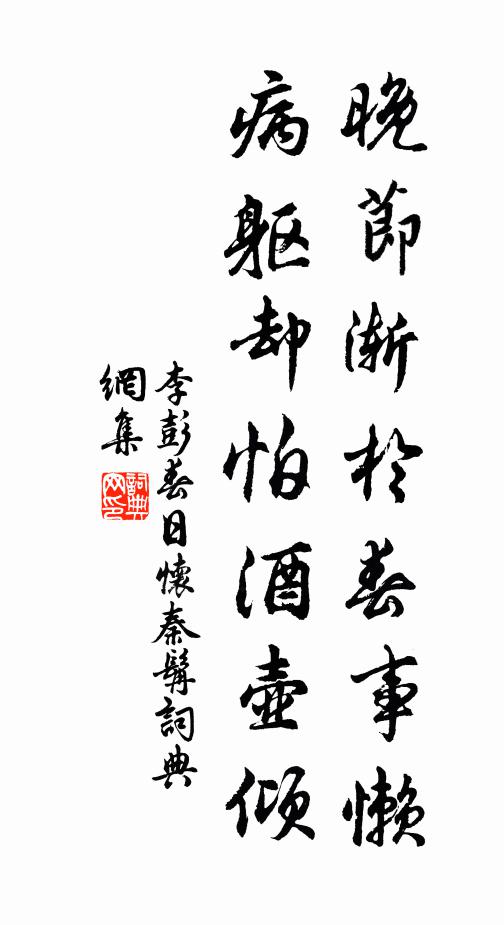 晚節漸於春事懶
病軀却怕酒壺傾
李彭春日懷秦髯詞典
網集
詞典
网印